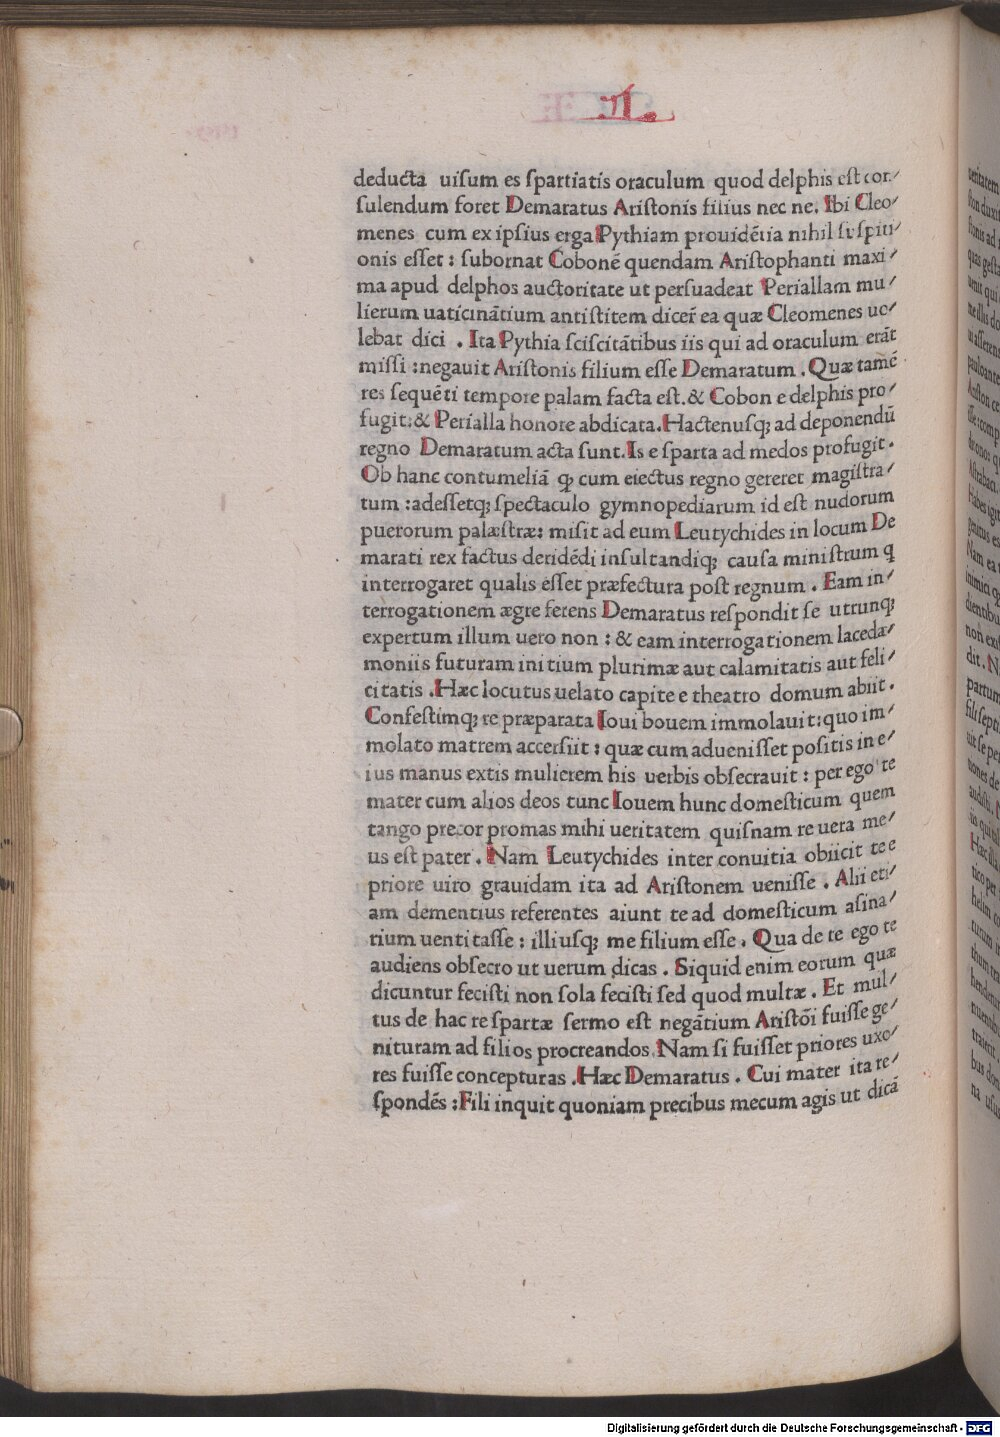 .VI.
deducta uiſum es ſpartiatis oraculum quod delphis eſt con⸗
ſulendum foret Demaratus Ariſtonis filius nec ne. Ibi Cleo⸗
menes cum ex ipſius erga Pythiam prouidētia nihil ſuſpiti⸗
onis eſſet : ſubornat Cobonē quendam Ariſtophanti maxi⸗
ma apud delphos auctoritate ut perſuadeat Periallam mu⸗
lierum uaticinātium antiſtitem dicer̄ ea quæ Cleomenes uo⸗
lebat dici . Ita Pythia ſciſcitātibus iis qui ad oraculum erāt
miſſi : negauit Ariſtonis filium eſſe Demaratum . Quæ tamē
res ſequēti tempore palam facta eſt. & Cobon e delphis pro⸗
fugit: & Perialla honore abdicata. Hactenuſq; ad deponendū
regno Demaratum acta ſunt. Is e ſparta ad medos profugit.
Ob hanc contumeliā ꝙ cum eiectus regno gereret magiſtra⸗
tum : adeſſetq; ſpectaculo gymnopediarum id eſt nudorum
puerorum palæſtræ: miſit ad eum Leutychides in locum De
marati rex factus deridēdi inſultandiq; cauſa miniſtrum q
interrogaret qualis eſſet præfectura poſt regnum . Eam in⸗
terrogationem ægre ferens Demaratus reſpondit ſe utrunq;
expertum illum uero non : & eam interrogationem lacedæ⸗
moniis futuram initium plurimæ aut calamitatis aut feli⸗
citatis . Hæc locutus uelato capite e theatro domum abiit.
Confeſtimq; re præparata Ioui bouem immolauit: quo im⸗
molato matrem accerſiit : quæ cum adueniſſet poſitis in e⸗
ius manus extis mulierem his uerbis obſecrauit : per ego te
mater cum alios deos tunc Iouem hunc domeſticum quem
tango precor promas mihi ueritatem quiſnam re uera me⸗
us eſt pater . Nam Leutychides inter conuitia obiicit te e
priore uiro grauidam ita ad Ariſtonem ueniſſe . Alii eti⸗
am dementius referentes aiunt te ad domeſticum aſina⸗
rium uentitaſſe : illiuſq; me filium eſſe . Qua de re ego te
audiens obſecro ut uerum dicas . Siquid enim eorum quæ
dicuntur feciſti non ſola feciſti ſed quod multæ . Et mul⸗
tus de hac re ſpartæ ſermo eſt negātium Ariſtōi fuiſſe ge⸗
nituram ad filios procreandos Nam ſi fuiſſet priores uxo⸗
res fuiſſe concepturas . Hæc Demaratus . Cui mater ita re⸗
ſpondēs : Fili inquit quoniam precibus mecum agis ut dicā
Digitalisierung gefördert durch die Deutsche Forschungsgemeinschaft - DFG